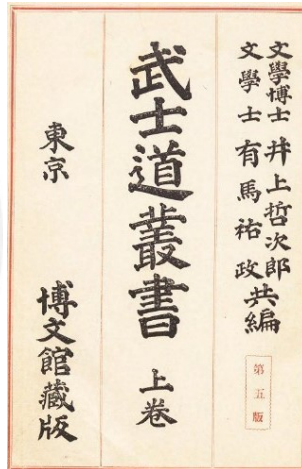 文學博士 井上哲次郎
文學士 有馬祐政 共編
第五版
武士道叢書 上卷
東京 博文館藏版